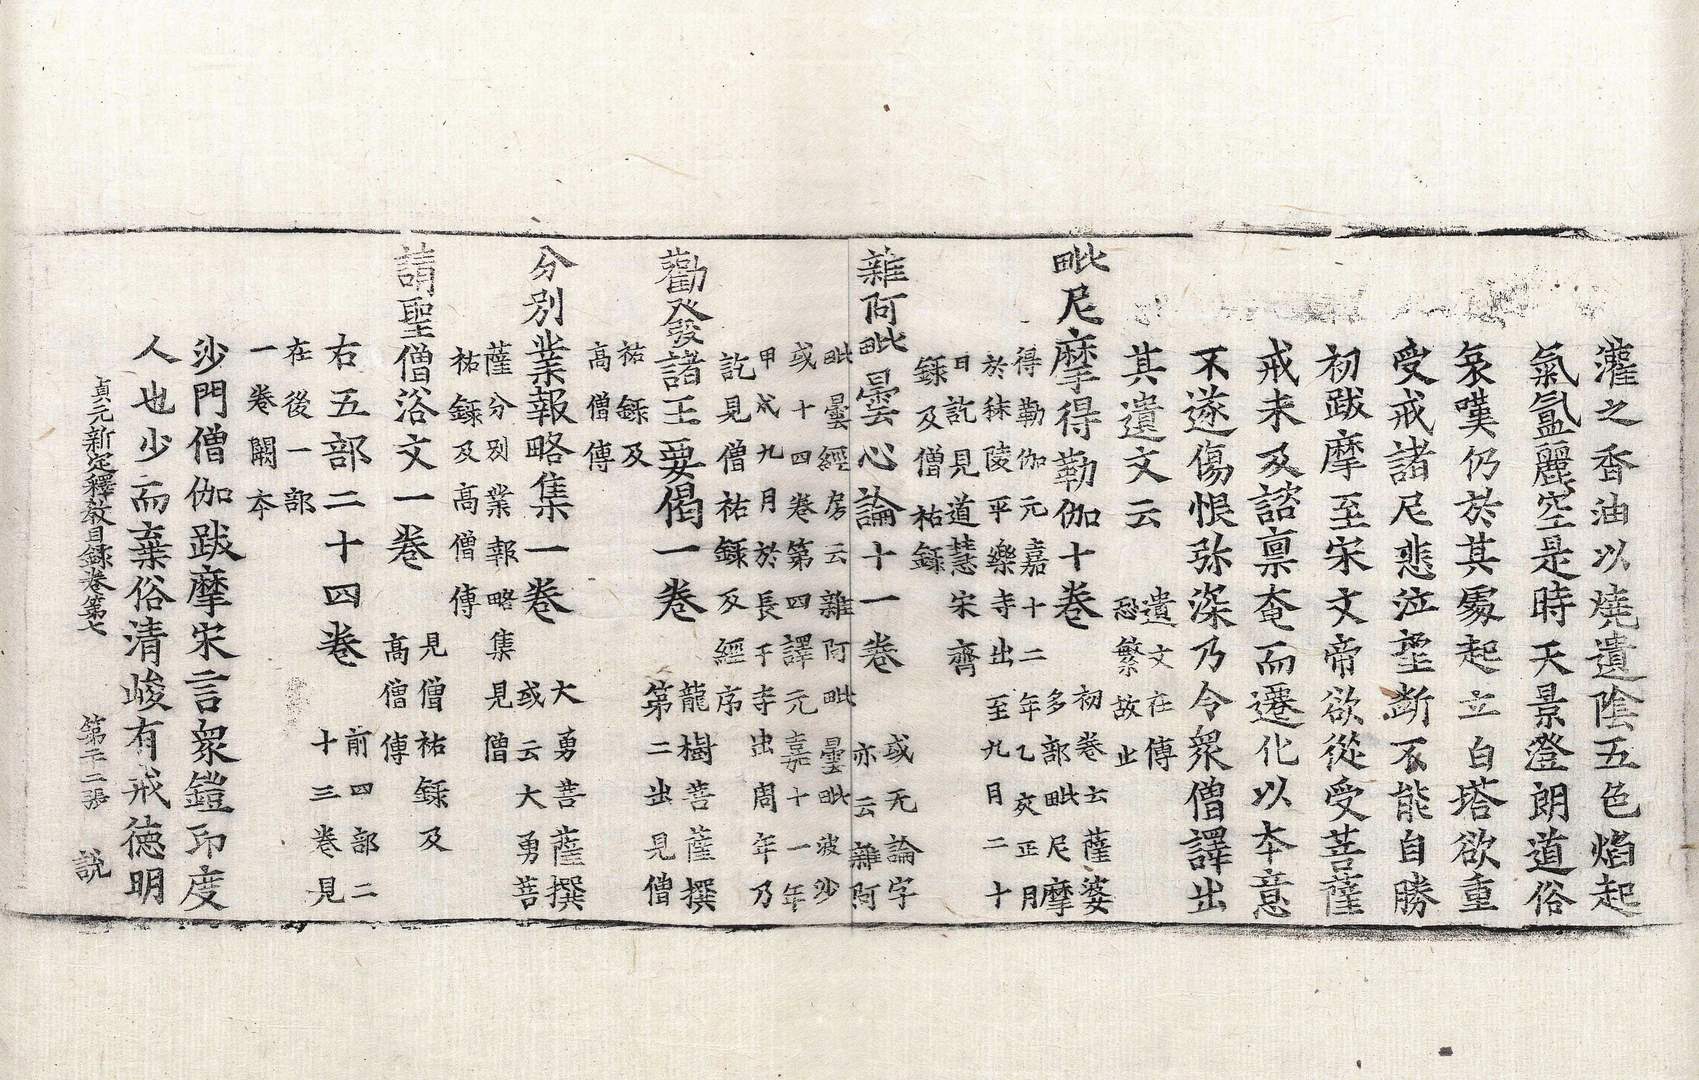 灌之香油以燒遺陰五色焰起
氣氳麗空是時天景澄朗道俗
哀嘆仍於其處起立白塔欲重
受戒諸尼悲泣望斷不能自勝
初跋摩至宋文帝欲從受菩薩
戒未及諮禀奄而遷化以本意
不遂傷恨弥深乃令衆僧譯出
其遺文云
遺文在傳
恐繁故止
毗尼摩得勒伽十卷
初卷云薩婆
多部毗尼摩
得勒伽元嘉十二年乙亥正月
於秣陵平樂寺出至九月二十
日訖見道慧宋齊
録及僧祐録
雜阿毗曇心論十一卷
或无論字
亦云雜阿
毗曇經房云雜阿毗曇毗波沙
或十四卷第四譯元嘉十一年
甲戌九月於長干寺出周年乃
訖見僧祐録及經序
勸發諸王要偈一卷
龍樹菩薩撰
第二出見僧
祐録及
高僧傳
分別業報略集一卷
大勇菩薩撰
或云大勇菩
薩分別業報略集見僧
祐録及高僧傳
請聖僧浴文一卷
見僧祐録及
高僧傳
右五部二十四卷
前四部二
十三卷見
在後一部
一卷闕本
沙門僧伽跋摩宋言衆鎧印度
人也少而棄俗清峻有戒德明
貞元新定釋教目録卷第七 第二張 説